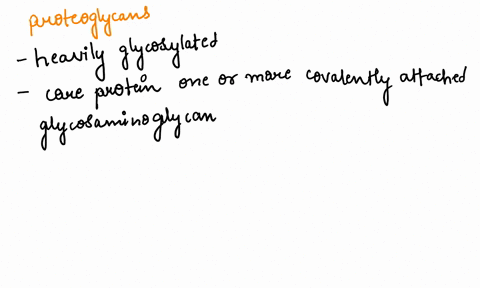 proteoglycans
- heavily glycosylated
- core protein one or more covalently attached
glycosaminoglycan